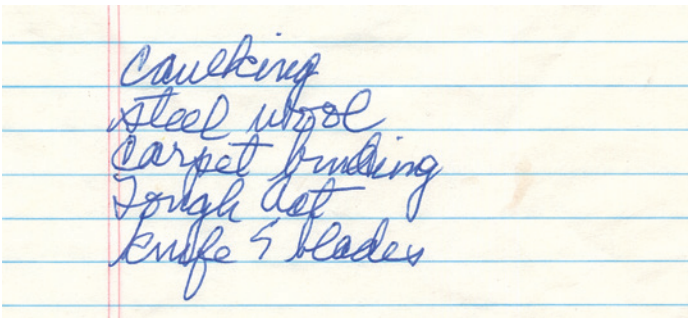 Caulking
steel wool
Carpet binding
Tough
knife 5 blades